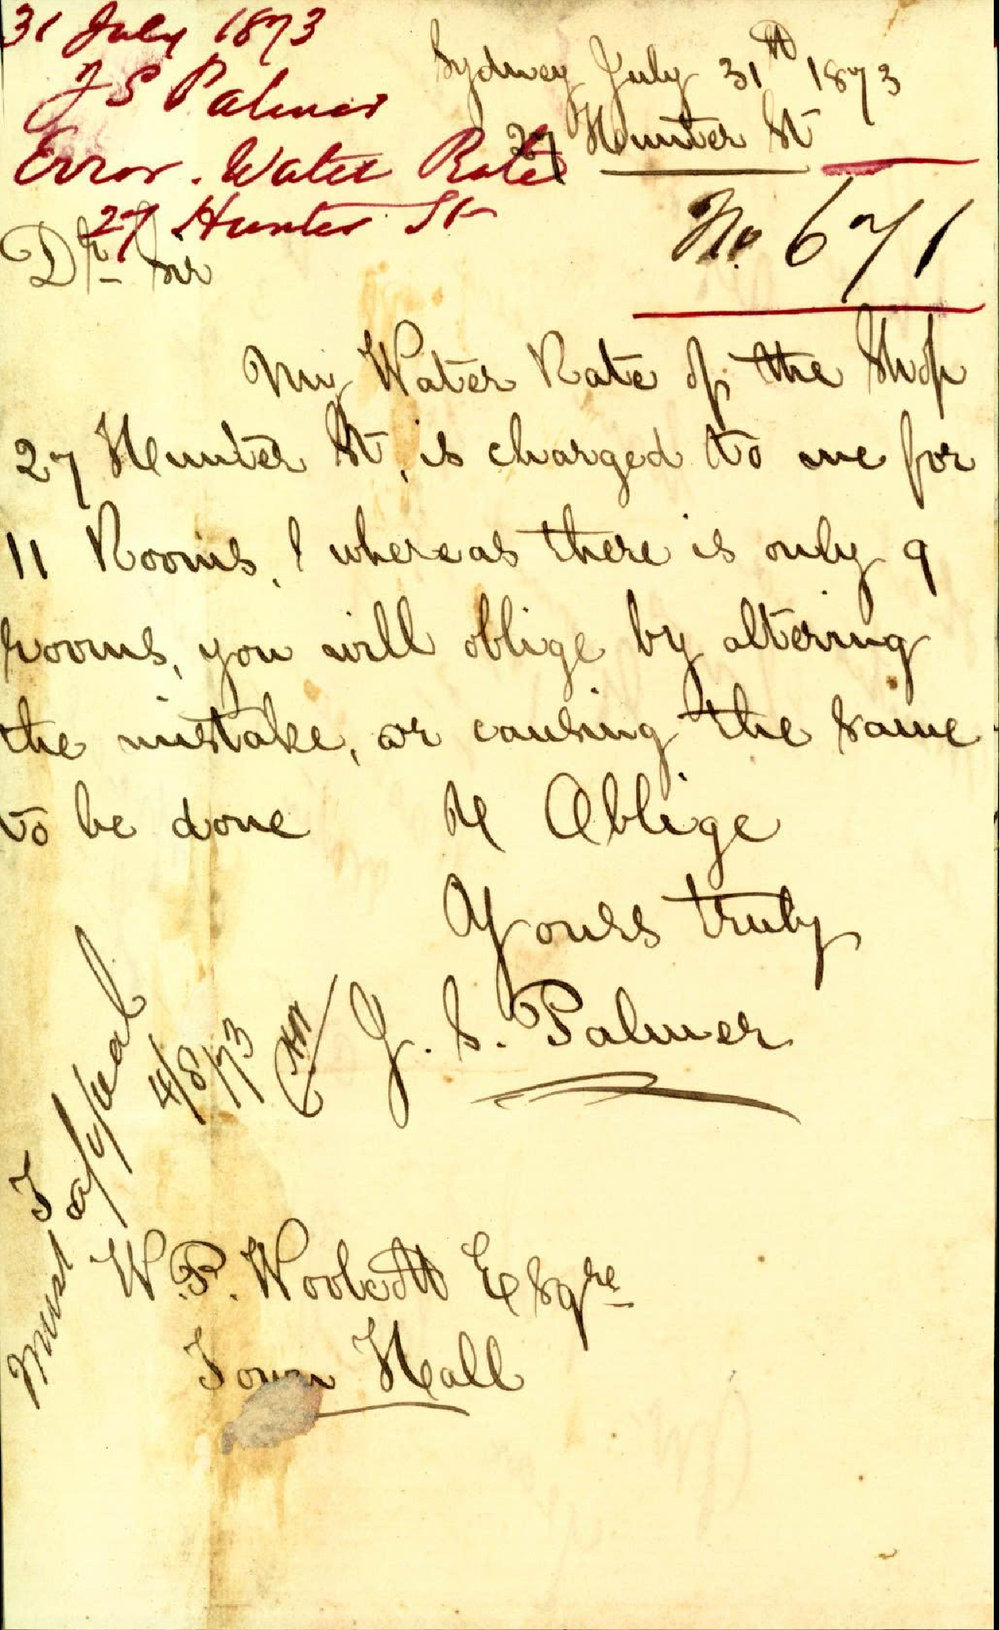 31 July 1873
J S Palmer
Error. Water Rates
27 Hunter St
Sydney July 31st 1873
27 Hunter St
No. 671
Dr Sir
My Water Rate of the Shop
27 Hunter St, is charged to me for
11 Rooms, whereas there is only 9
rooms, you will oblige by altering
the mistake, or causing the same
to be done & Oblige
Yours truly
J. S. Palmer
Must
appeal
4/8/73
W. P. Woolcott Esqre
Town Hall